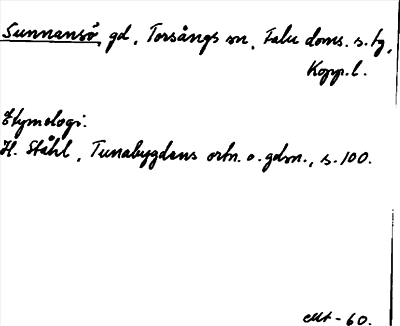 Sunnansö gd, Torsångs sn, Falu doms. s. tg,
Kopp. l.
Etymologi:
H. Ståhl, Tunabygdens ortn. o. gdsn., s. 100.
-60.